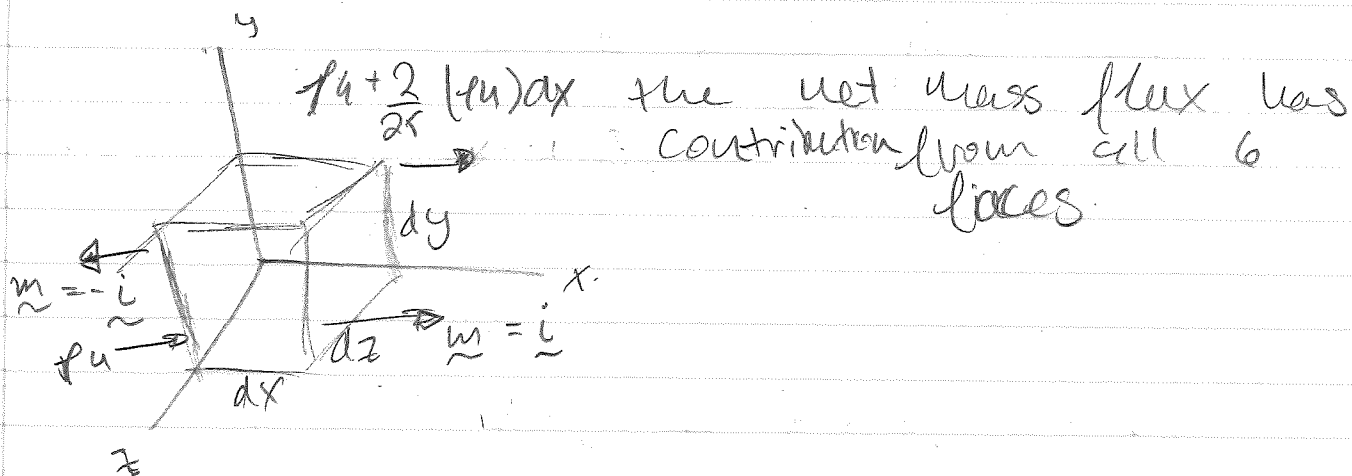 y
ρu + ∂/∂x (ρu)dx the net mass flux has
contribution from all 6
faces.
dy
x.
n = - i
dz
n = i
ρu
dx
z